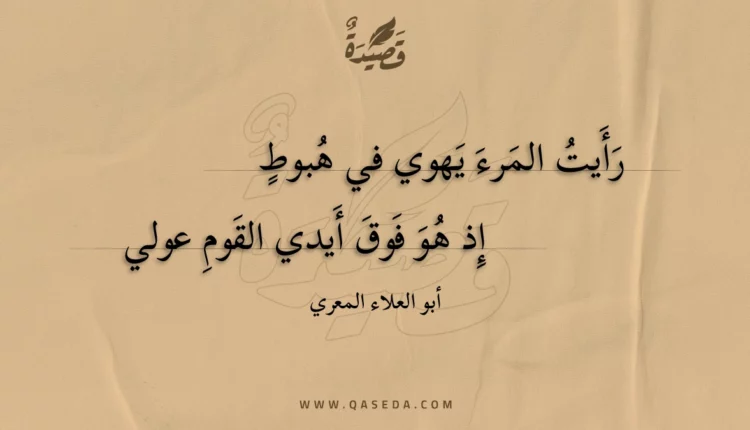 قَصِيدَةٌ
رَأَيتُ المَرءَ يَهوي في هُبوطٍ
إِذ هُوَ فَوقَ أَيدي القَومِ عولي
أبو العلاء المعري
WWW.QASEDA.COM